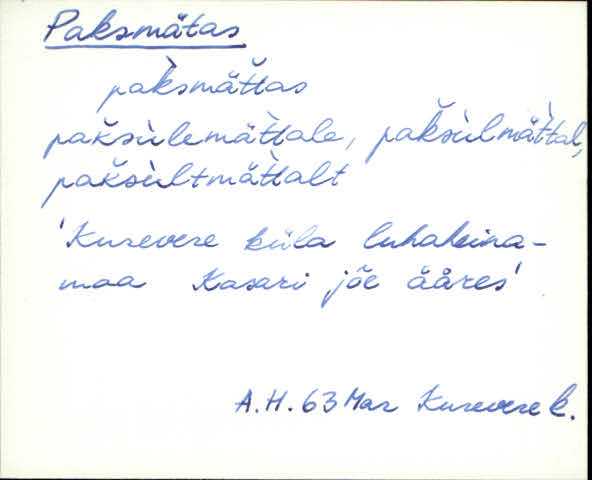 Paksmätas
pàksmät̆tas
pak̆sùlemät̀tale, pak̆sùlmät̀tal,
pak̆sùltmät̀talt
'Kurevere küla luhaheina-
maa Kasari jõe ääres'
A.H. 63 Mar Kurevere k.